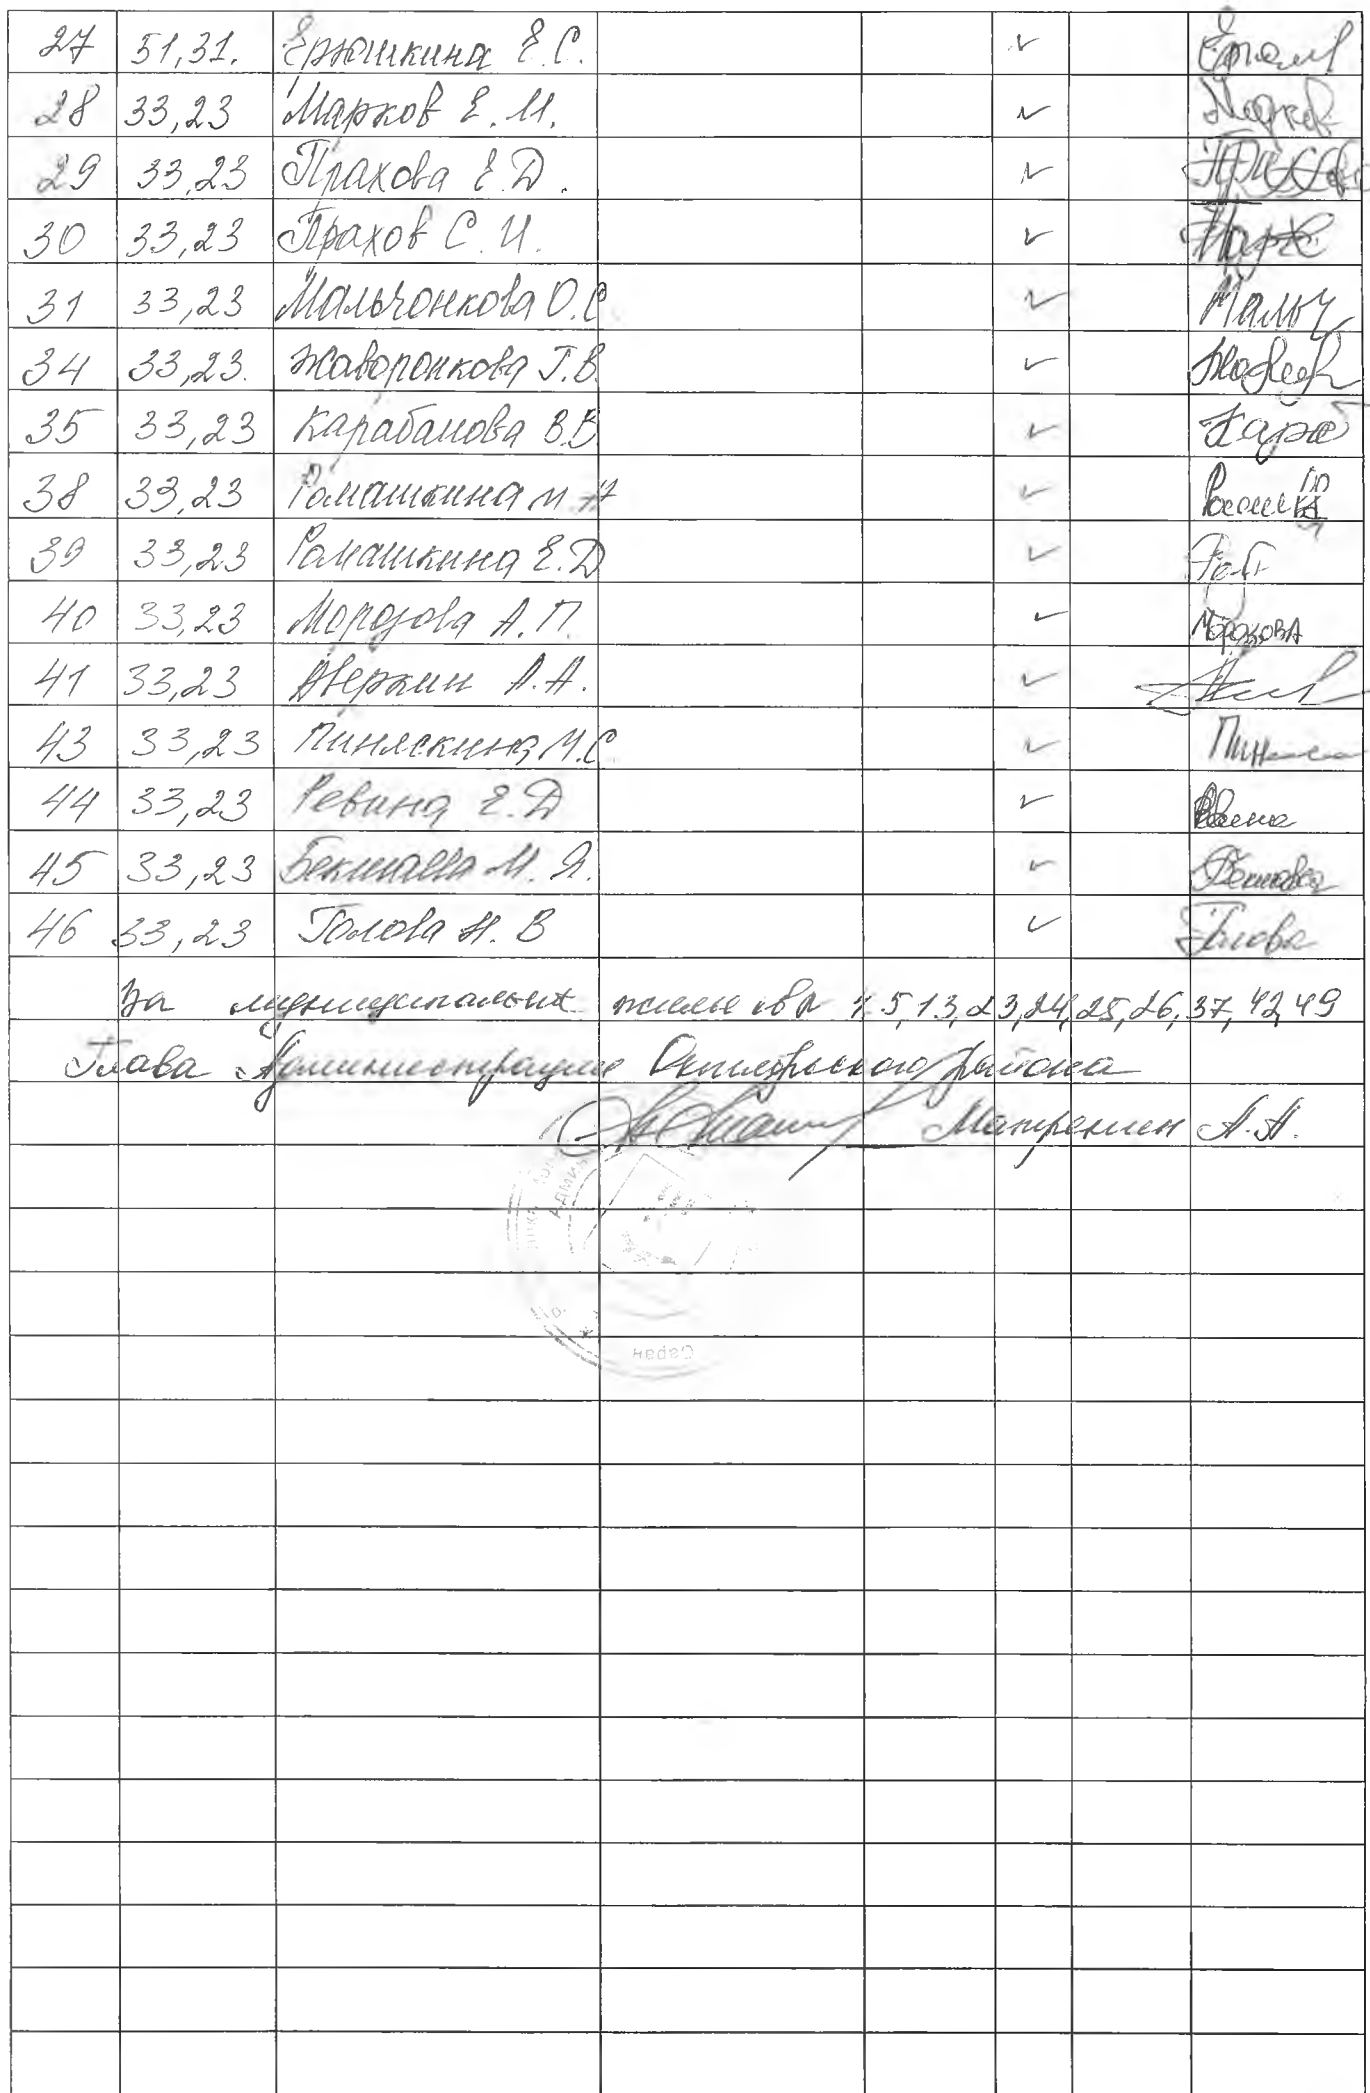 27 51,31. Ерюшкина Е.С. ✓
28 33,23 Марков Е.И. ✓ Марков
29 33,23 Прахова Е.Д. ✓
30 33,23 Прахов С.И. ✓
31 33,23 Мальчонкова О.С ✓ Мальч
34 33,23. Жаворонкова Т.В. ✓
35 33,23 Карабанова В.В ✓ Караб
38 33,23 Ромашкина М ✓
39 33,23 Ромашкина Е.Д ✓
40 33,23 Морозова А.П. ✓ Морозова
41 33,23 Аверкин А.А. ✓
43 33,23 Пиняскина М.С ✓
44 33,23 Ревина Е.Д ✓
45 33,23 Бекшаева М.Я. ✓
46 33,23 Голова Н.В ✓ Голова
За муниципальное жилье кв 1 5, 13, 23, 24, 25, 26, 37, 42, 49
Глава Администрации Октябрьского района
Матрёнин А.А.
Саран